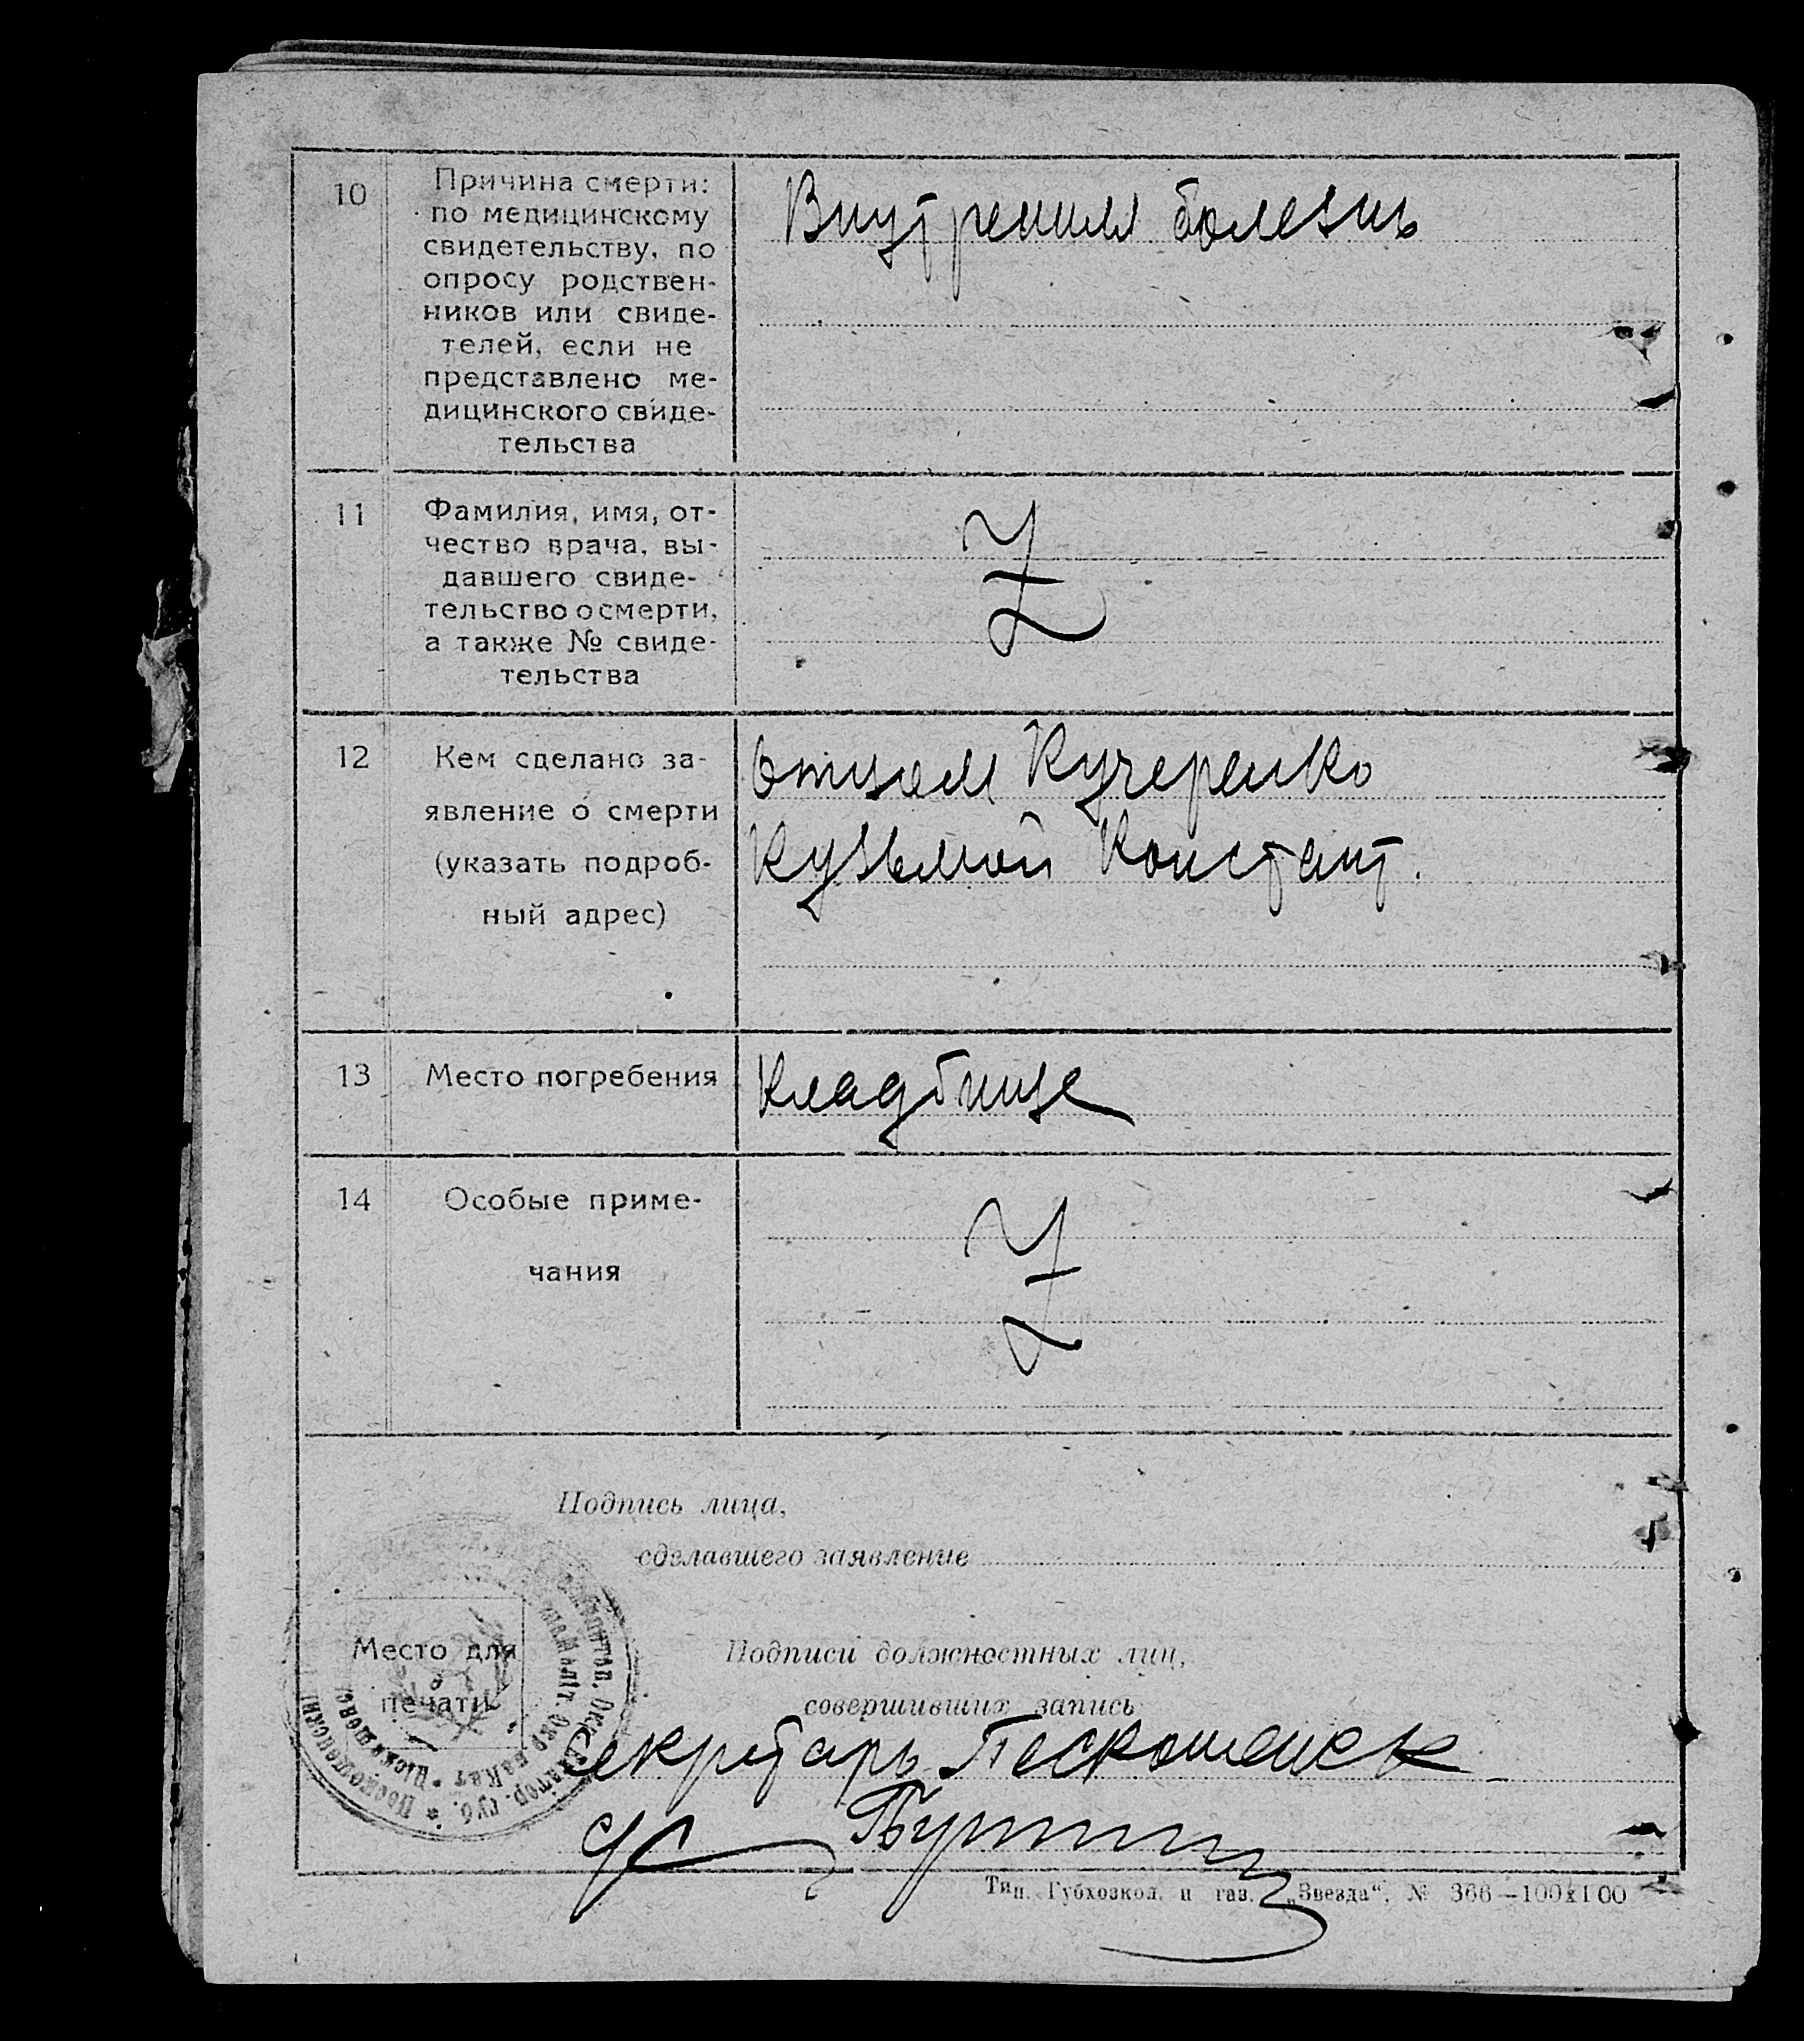 10
Причина смерти:
по медицинскому
свидетельству, по
опросу родствен-
ников или свиде-
телей, если не
представлено ме-
дицинского свиде-
тельства
Внутренняя болезнь
11
Фамилия, имя, от-
чество врача, вы-
давшего свиде-
тельство о смерти,
а также № свиде-
тельства
Z
12
Кем сделано за-
явление о смерти
(указать подроб-
ный адрес)
Отцем Кучеренко
Кузьмой Констант.
13
Место погребения
Кладбище
14
Особые приме-
чания
Z
Подпись лица,
сделавшего заявление
Место для
печати
Подписи должностных лиц,
совершивших запись
Секретарь
Тип. Губхозкол. и газ. „Звезда“, № 366—100х100